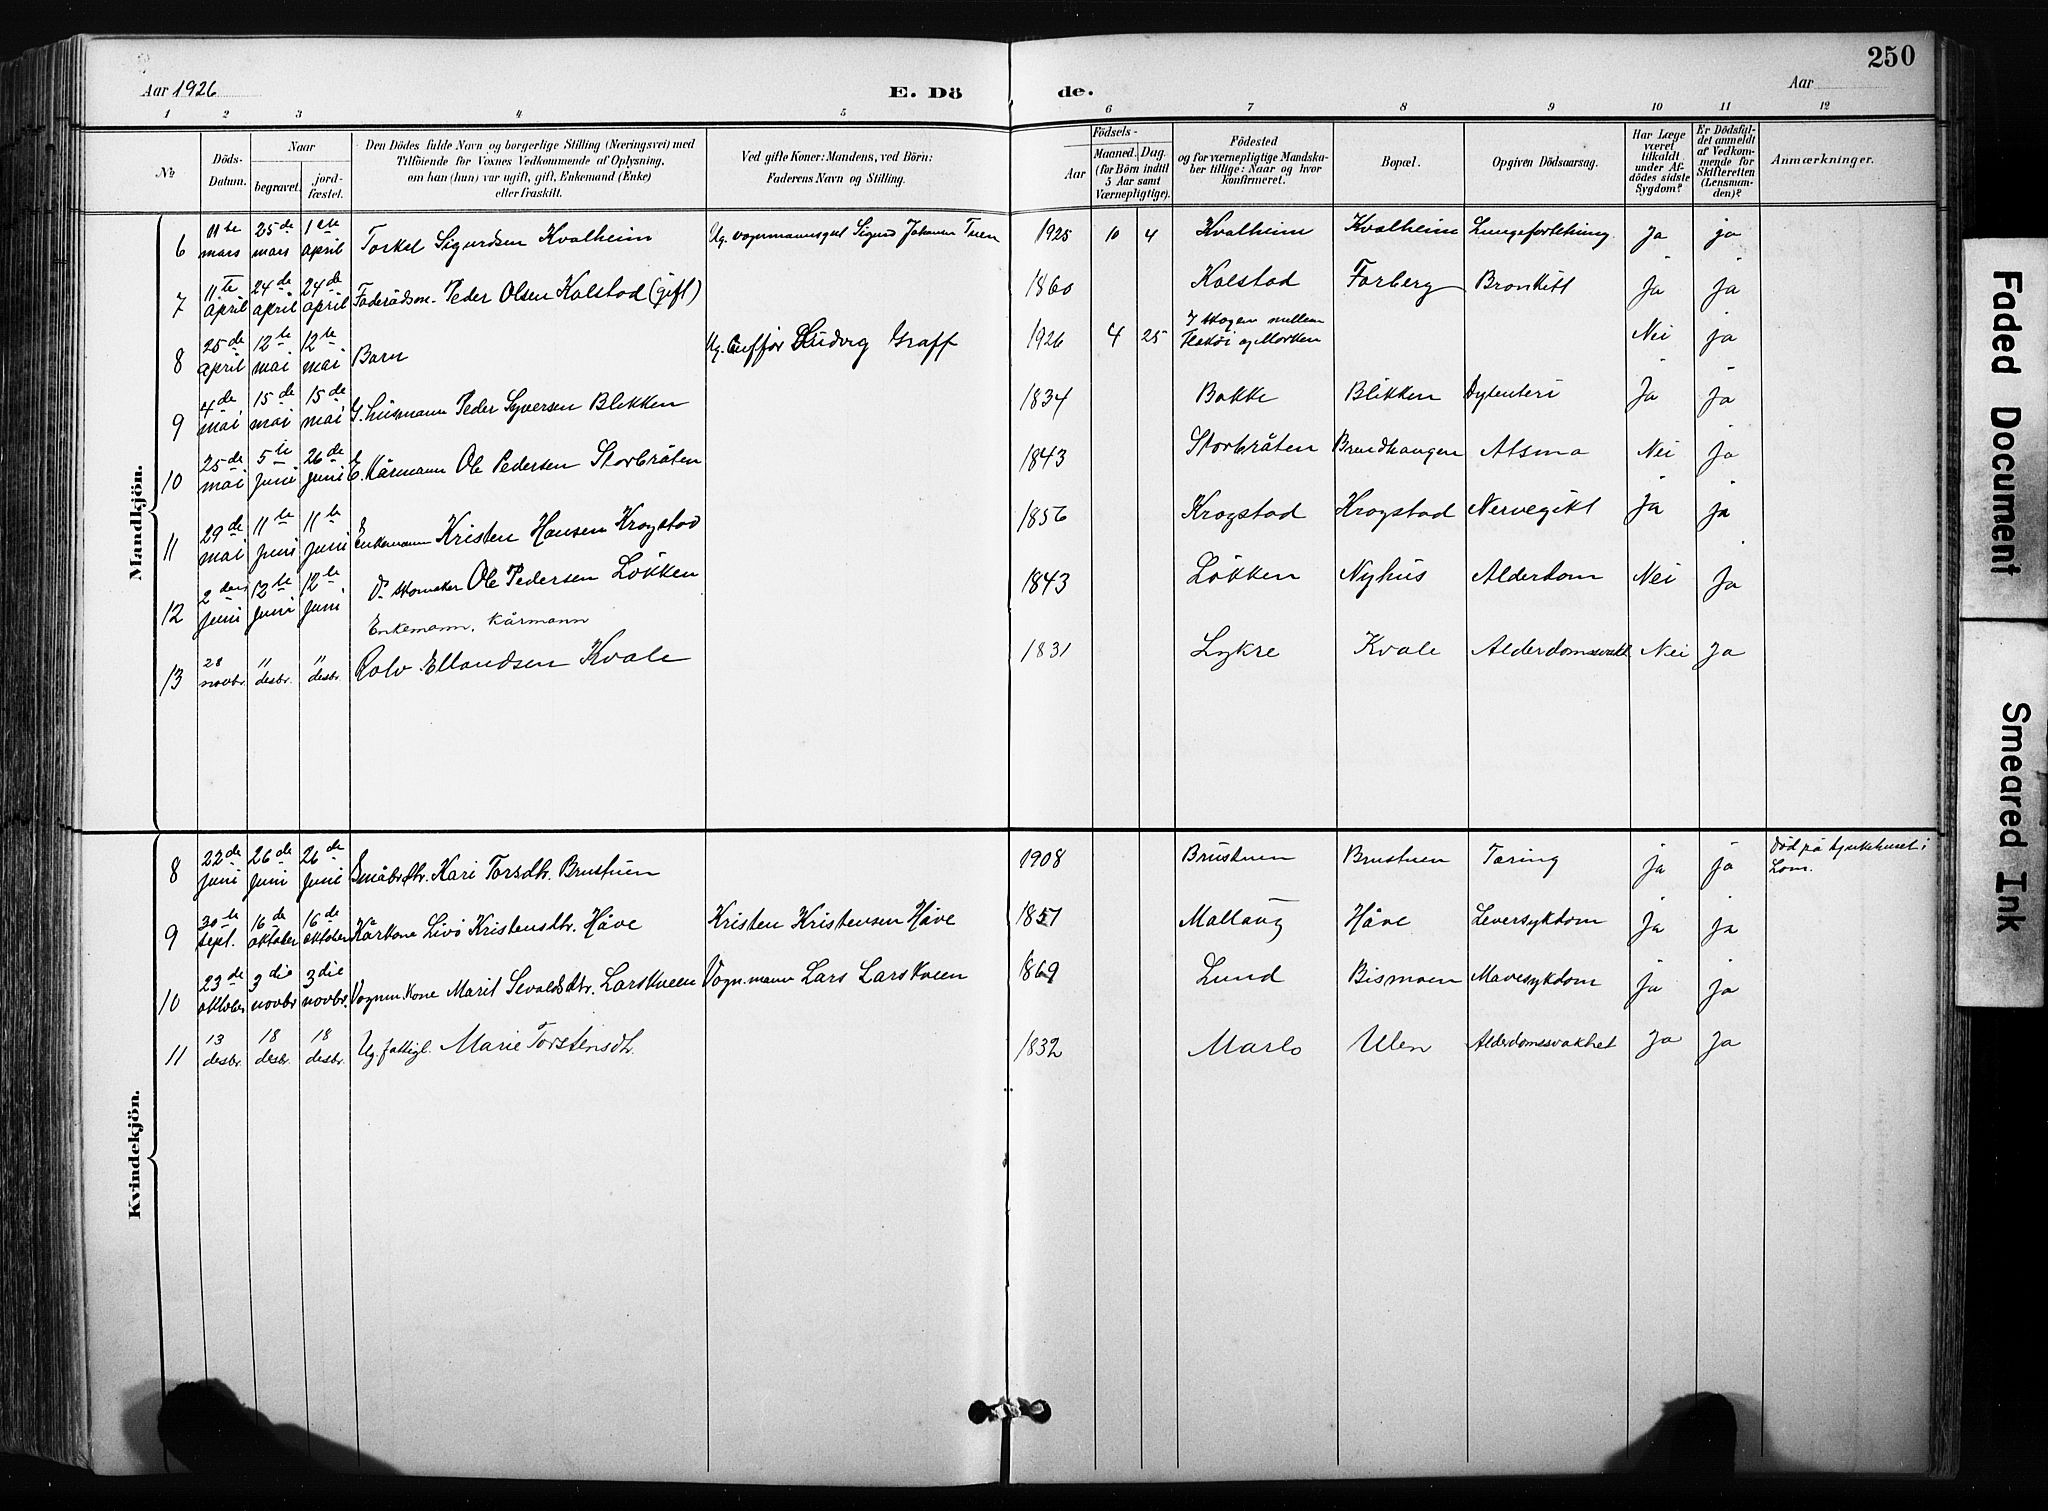 250
Aar 1926
E. Dö
de.
Aar
1 2 3 4 5 6 7 8 9 10 11 12
No
Döds-Datum.
Naar
begravet.
jord-fæstet.
Den Dödes fulde Navn og borgerlige Stilling (Næringsvei) med
Tilföiende for Voxnes Vedkommende af Oplysning,
om han (hun) var ugift, gift, Enkemand (Enke)
eller fraskilt.
Ved gifte Koner: Mandens, ved Börn:
Faderens Navn og Stilling.
Födsels-
Aar
Maaned. Dag.
(for Börn indtil
5 Aar samt
Værnepligtige).
Födested
og for værnepligtige Mandska-
ber tillige: Naar og hvor
konfirmeret.
Bopæl.
Opgiven Dödsaarsag.
Har Læge
været
tilkaldt
under Af-
dödes sidste
Sygdom?
Er Dödsfal-
det anmeldt
af Vedkom-
mende for
Skifteretten
(Lensman-
den)?
Anmærkninger.
Mandkjön.
6 11te mars 25de mars 1ste april Torkel Sigurdsen Kvalheim Ug. Sigurd Johannes 1925 10 4 Kvalheim Kvalheim Ja ja
7 11te april 24de april 24de april Föderådsm. Peder Olsen Kolstad (gift) 1860 Kolstad Forberg Bronkitt Ja Ja
8 25de april 12te mai 12te mai Barn Ug. Ludvig Graff 1926 4 25 I skogen mellem og Morken Nei ja
9 4de mai 15de mai 15de mai G. husmann Peder Syversen Blekken 1834 Bakke Blikken Dysenteri Ja Ja
10 25de mai 5te juni 26de juni E. Kårmann Ole Pedersen Storbråten 1843 Storbråten Brendhaugen Atsma Nei Ja
11 29de mai 11te juni 11te juni Enkemann Kristen Hansen Krogstad 1856 Krogstad Krogstad Nervegikt Ja ja
12 2den juni 12te juni 12te juni Do skomaker Ole Pedersen Lökken 1843 Lökken Nyhus Alderdom Nei Ja
Enkemann, Kårmann
13 28 novbr. 11 desbr. 11 desbr. Rolv Ellandsen Kvale 1831 Lykre Kvale Alderdomssvakh. Nei Ja
Kvindekjön.
8 22de juni 26de juni 26de juni Småbr.dtr. Kari Torsdtr. Brustuen 1908 Brustuen Brustuen Tæring ja ja Död på sjukehuset i
Lom.
9 30te sept. 16de oktober 16de oktober Kårkone Livö Kristensdtr. Håve Kristen Kristensen Håve 1851 Mallaug Håve Leversykdom Ja ja
10 23de oktober 3die novbr 3die novbr. Vognm. Kone Marit Sevaldsdtr. Larskveen Vogn.mann Lars Larskveen 1869 Lund Bismoen Mavesykdom Ja Ja
11 13 desbr. 18 desbr. 18 desbr. Ug. fattigl. Marie Torstensdtr. 1832 Marlo Ulen Alderdomssvakhet Ja Ja
Faded Document
Smeared Ink